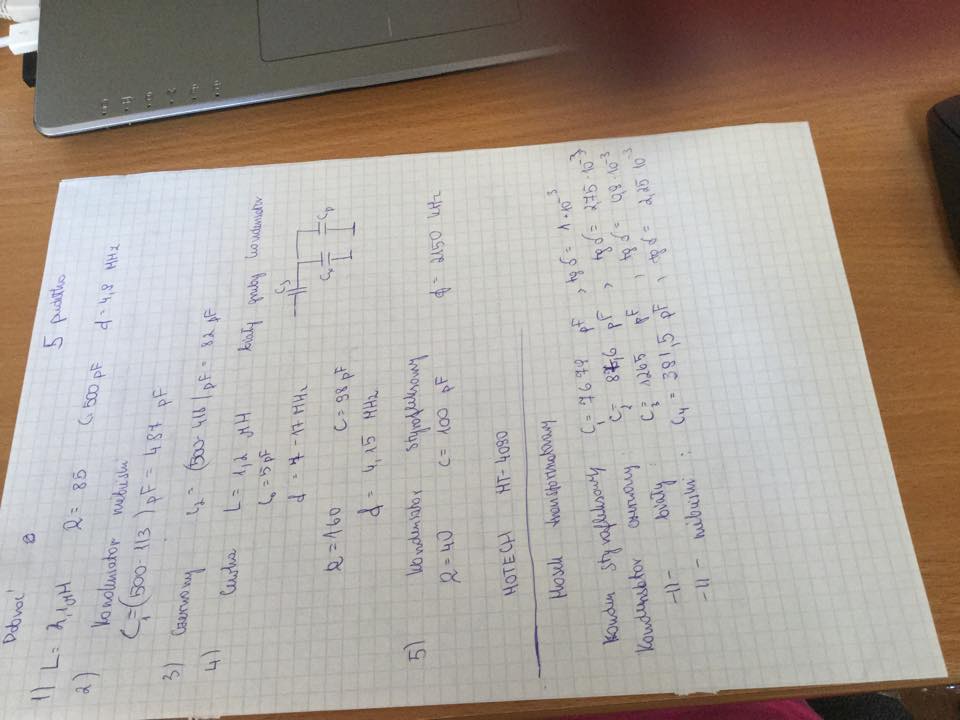 Dobroć 5 pudełko
1) L = 2,1 μH Q = 85 C=500 pF f = 4,8 MHz
2) Kondensator niebieski
C₁=(500-113) pF = 487 pF
3) Czerwony : C₂ = (500-418) pF = 82 pF
4) Cewka L = 1,2 μH biały gruby kondensator
C₀ = 5 pF
f = 7 - 17 MHz
C₃
Cₓ Cₚ
Q = 160 C = 98 pF
f = 4,15 MHz
5) Kondensator styrofleksowy
Q = 40 C = 100 pF f = 2150 kHz
HOTECH HT-4090
Mostek transformatorowy
Konden styrofleksowy C₁ = 7679 pF , tg δ = 1 * 10⁻³
Kondensator czerwony C₂ = 87,6 pF , tg δ = 2,75 · 10⁻³
-11- biały : C₃ = 1265 pF , tg δ = 9,8 · 10⁻³
-11- niebieski : C₄ = 381,5 pF , tg δ = 2,25 · 10⁻³